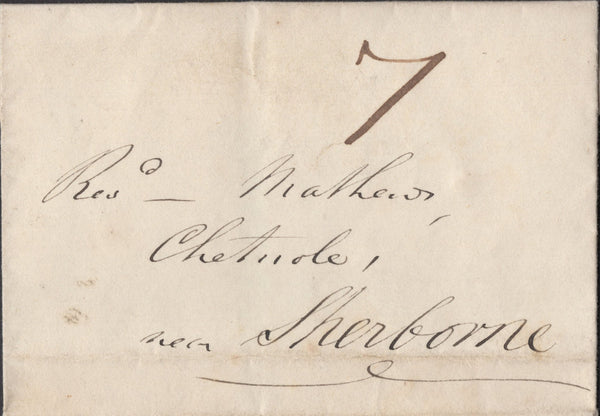 7
Revd — Mathews,
Chetnole,
near Sherborne